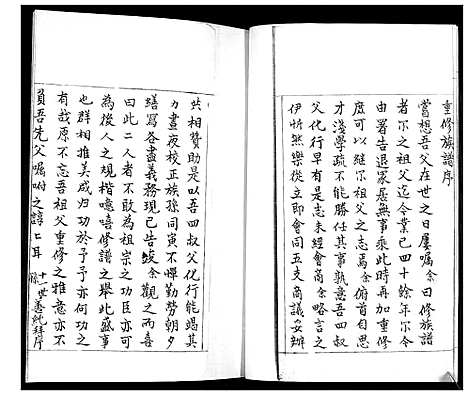 重修族譜序
嘗想吾父在世之日屢囑余曰修族譜
者尔之祖父迄今業已四十餘年尔今
由署告退家居無事乘此時再加重修
庶可以繼尔祖父之志焉余俯首自思
才淺學疏不能勝任其事孰意吾四叔
父化行早有是志未經會商余略言之
伊忻然樂從立即會同五支商議妥辦
共相贊助是以吾四叔父化行竭其
力晝夜校正族孫同寅不憚勤勞朝夕
繕寫各盡義務現已告竣余觀之而喜
曰此二人者不敢為祖宗之功臣亦可
為後人之規楷噫嘻修譜之舉此盛事
也群相推美咸归功於予予亦何功之
有哉原不忘吾祖父重修之雅意亦不
負吾先父囑咐之諄諄耳 十世孫善純拜序